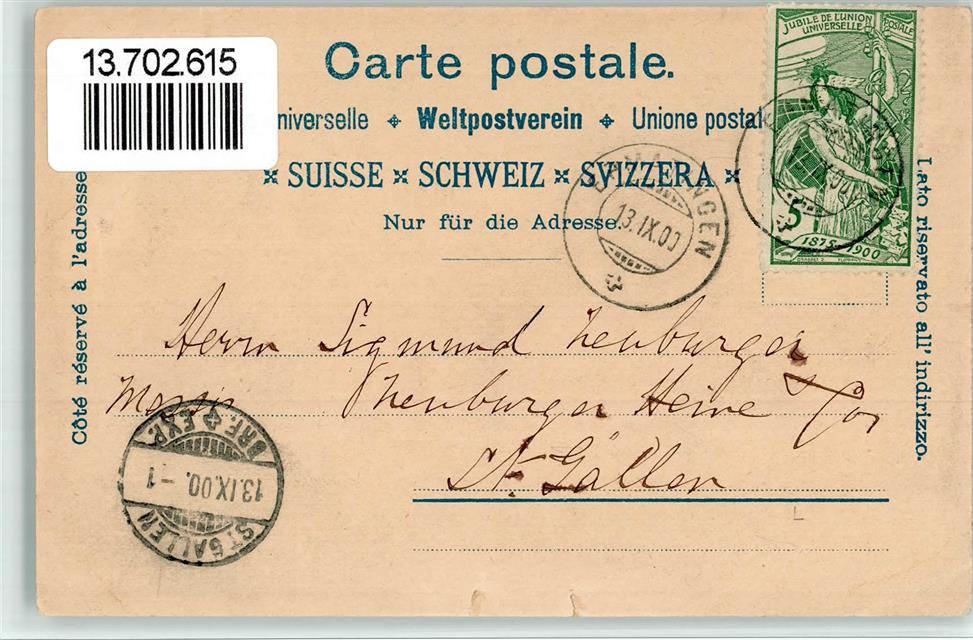 13.702.615
Carte postale.
niverselle Weltpostverein Unione postal
SUISSE SCHWEIZ SVIZZERA
Nur für die Adresse.
Côté réservé à l'adresse
Lato riservato all' indirizzo.
JUBILÉ DE L'UNION
UNIVERSELLE POSTALE
5
1875 1900
13.IX.00
Herrn Sigmund Neuburger
Neuburger Heine & Co
St. Gallen
BRF. EXP.
13.IX.00.-1
ST. GALLEN